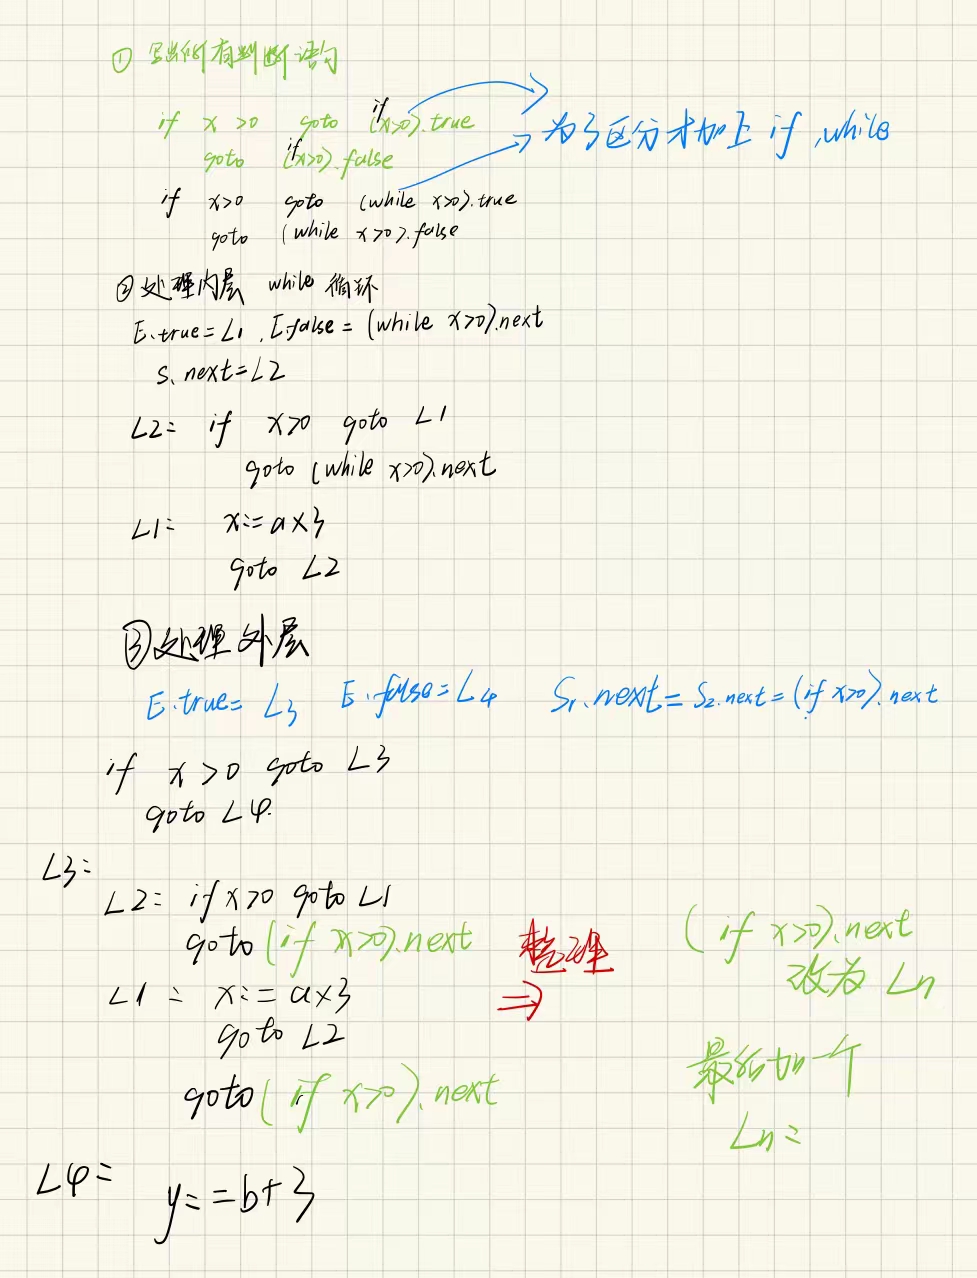 ① 写出所有判断语句
if x >0 goto (if x>0).true
goto (if x>0).false
为了区分才加上 if ,while
if x>0 goto (while x>0).true
goto (while x>0).false
②处理内层 while 循环
E.true=L1 ,E.false = (while x>0).next
S1.next=L2
L2: if x>0 goto L1
goto (while x>0).next
L1: x:=a×3
goto L2
③处理外层
E.true= L3 E.false=L4 S1.next=S2.next=(if x>0).next
if x>0 goto L3
goto L4.
L3:
L2: if x>0 goto L1
goto (if x>0).next
L1: x:=a×3
goto L2
goto (if x>0).next
整理
⇒
(if x>0).next
改为 Ln
最后加一个
Ln:
L4: y:=b+3